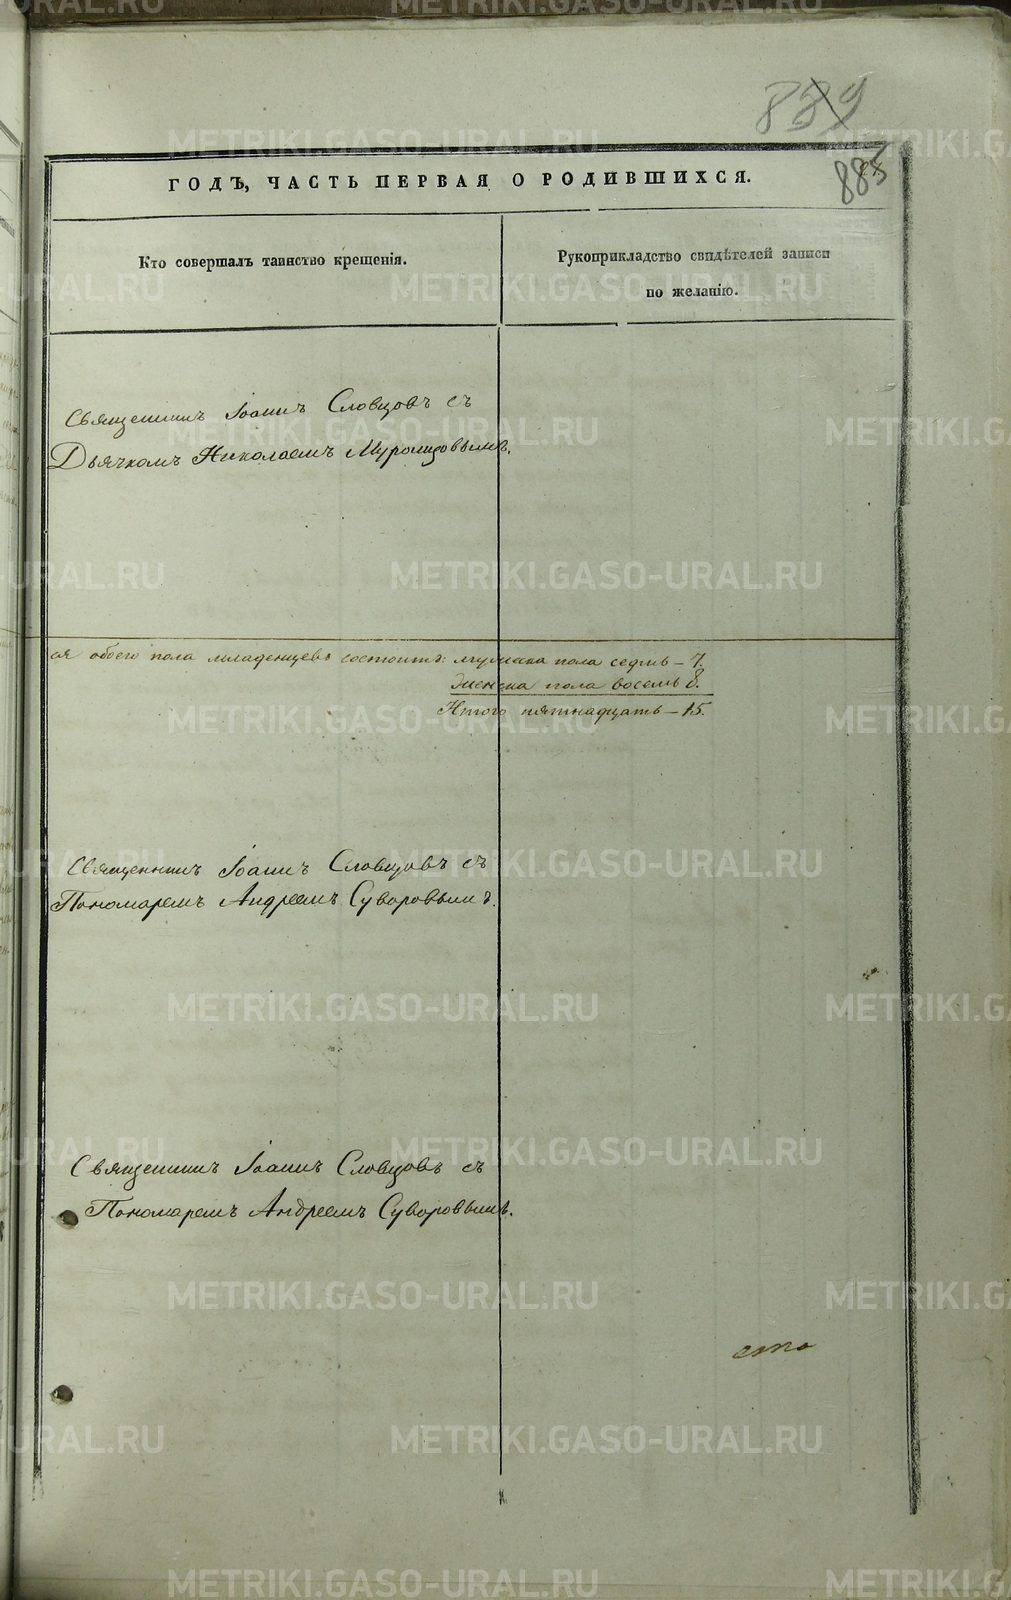 889
883
ГОДЪ, ЧАСТЬ ПЕРВАЯ О РОДИВШИХСЯ.
Кто совершалъ таинство крещенія.
Рукоприкладство свидѣтелей записи
по желанію.
Священникъ Іоаннъ Словцовъ съ
Дьячкомъ Николаемъ Муромцовымъ.
ся обоего пола младенцевъ состоитъ: мужеска пола седмь – 7.
женска пола восемь 8.
Итого пятнадцать – 15.
Священникъ Іоаннъ Словцовъ съ
Пономаремъ Андреемъ Суворовымъ.
Священникъ Іоаннъ Словцовъ съ
Пономаремъ Андреемъ Суворовымъ.
METRIKI.GASO-URAL.RU